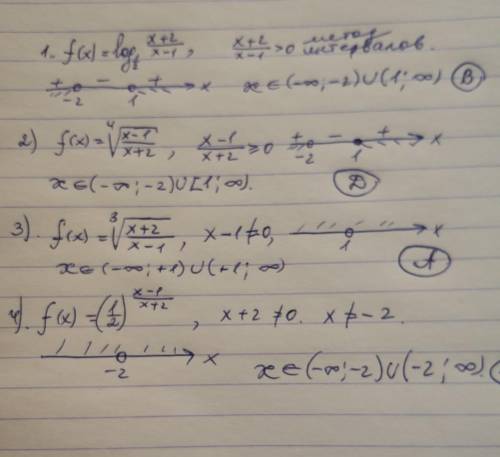 1. f(x)=log₂ (x+2)/(x-1), (x+2)/(x-1)>0 метод интервалов.
+ -2 - 1 + x x∈(-∞;-2)∪(1;∞) В
2) f(x)=⁴√((x-1)/(x+2)), (x-1)/(x+2)≥0 + -2 - 1 + x
x∈(-∞;-2)∪[1;∞). Д
3). f(x)=³√((x+2)/(x-1)), x-1≠0, 1 x
x∈(-∞;+1)∪(+1;∞) А
4). f(x)=(1/2)^((x-1)/(x+2)), x+2≠0. x≠-2.
-2 x x∈(-∞;-2)∪(-2;∞).